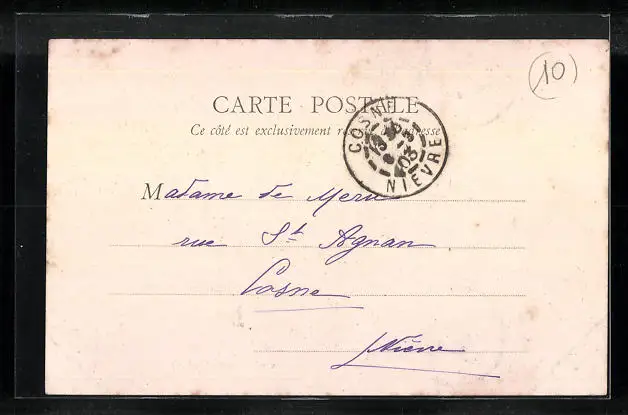 10
CARTE POSTALE
Ce côté est exclusivement réservé à l'adresse
COSNE
NIEVRE
03
Madame de Meru
rue St Agnan
Cosne
Nièvre